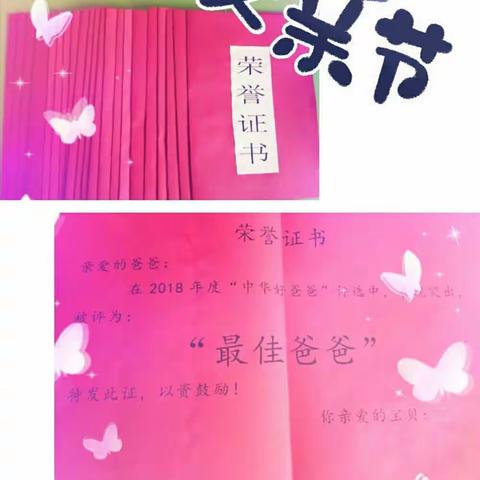 亲节
荣誉证书
荣誉证书
亲爱的爸爸：
在2018年度“中华好爸爸”评选中，表现突出，
被评为：
“最佳爸爸”
特发此证，以资鼓励！
你亲爱的宝贝：